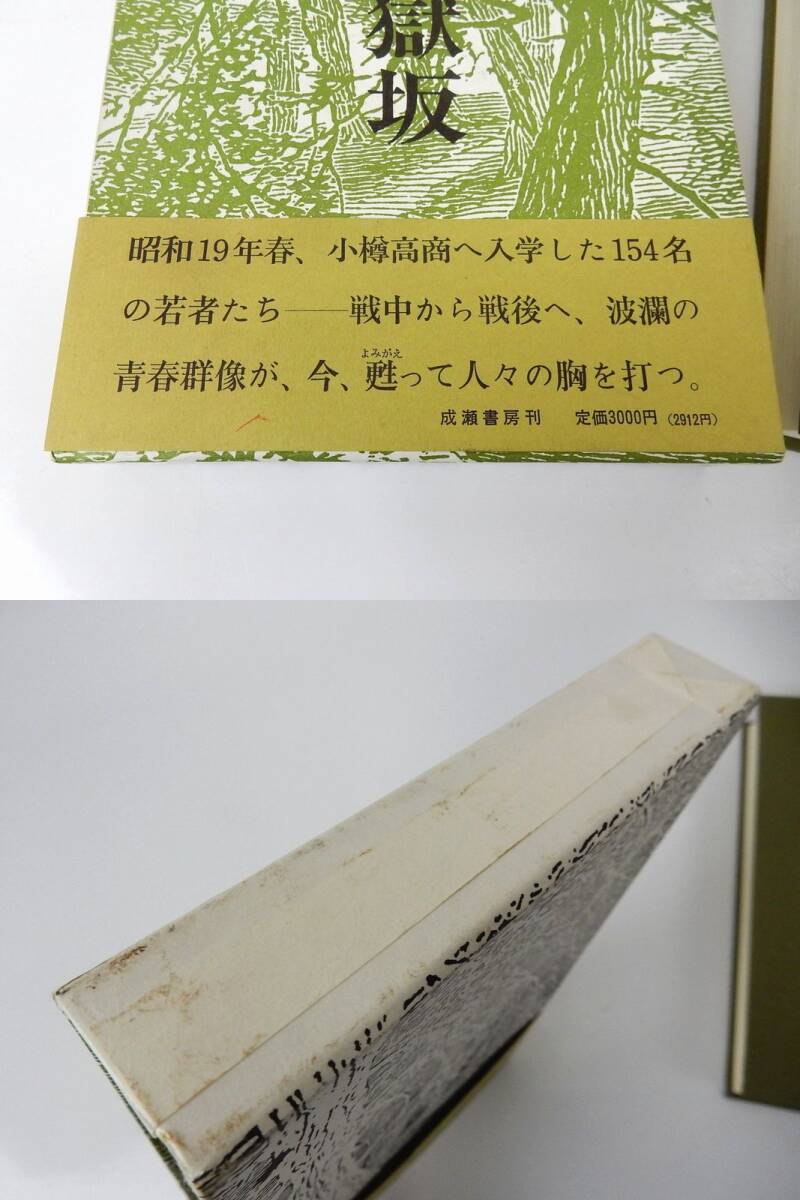 獄坂
昭和19年春、小樽高商へ入学した154名
の若者たち——戦中から戦後へ、波瀾の
よみがえ
青春群像が、今、甦って人々の胸を打つ。
成瀬書房刊 定価3000円（2912円）